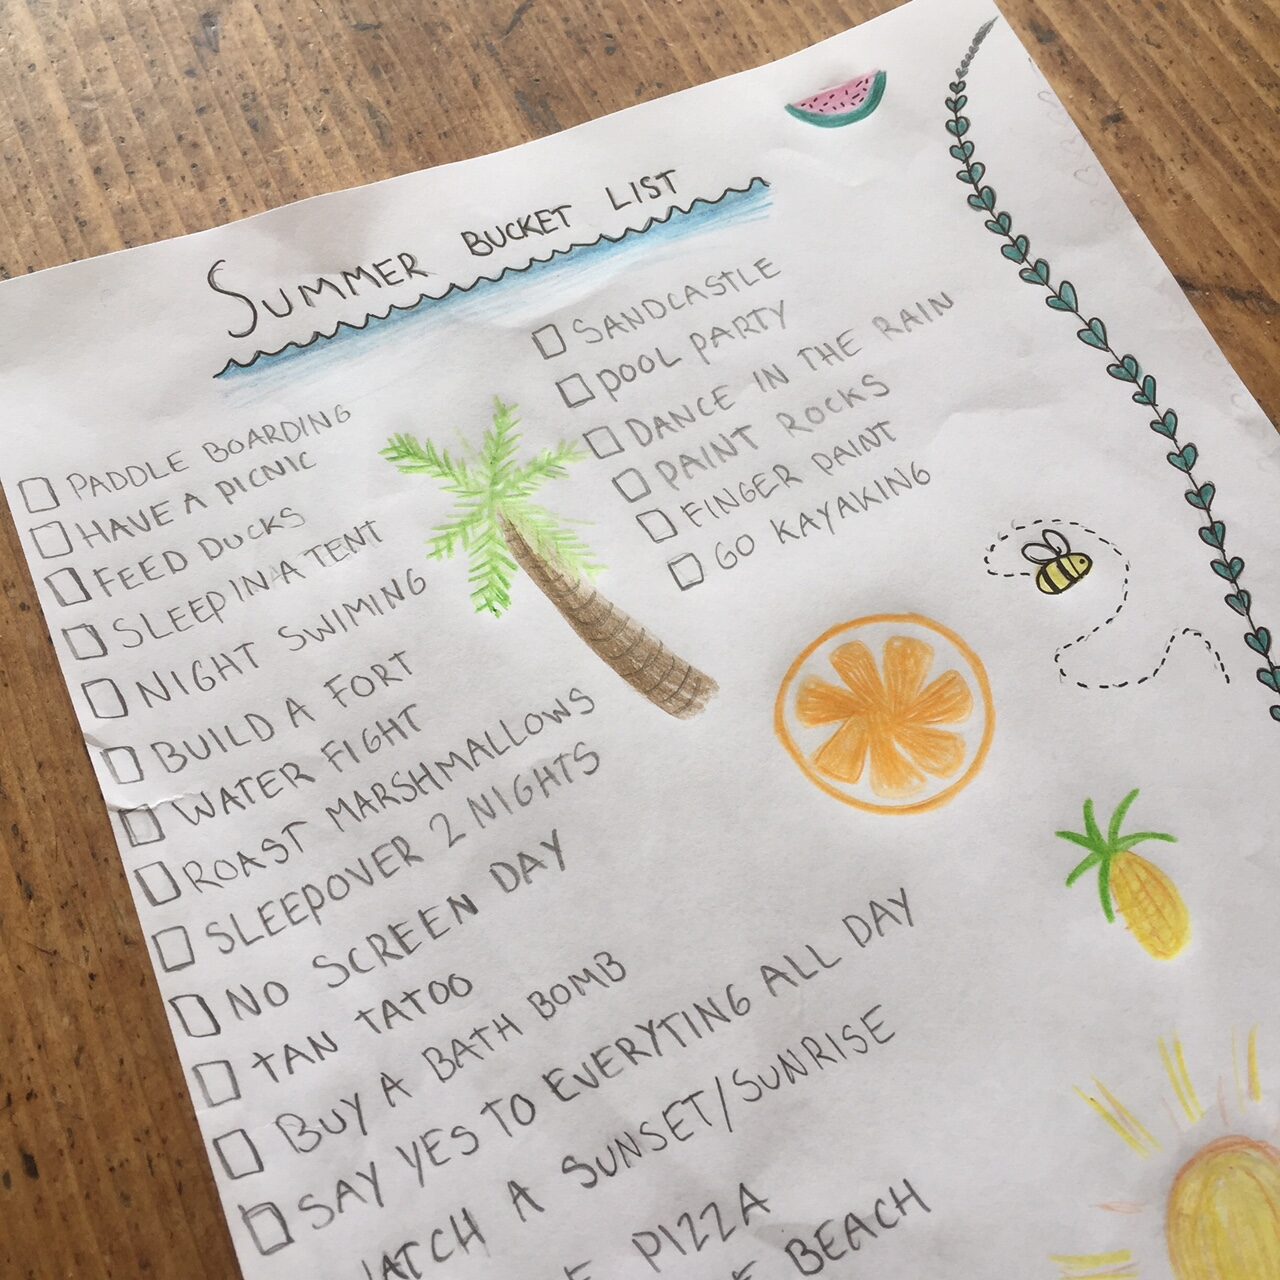 SUMMER BUCKET LIST
PADDLE BOARDING
HAVE A PICNIC
FEED DUCKS
SLEEP IN A TENT
NIGHT SWIMING
BUILD A FORT
WATER FIGHT
ROAST MARSHMALLOWS
SLEEPOVER 2 NIGHTS
NO SCREEN DAY
TAN TATOO
BUY A BATH BOMB
SAY YES TO EVERYTING ALL DAY
ATCH A SUNSET/SUNRISE
PIZZA
BEACH
SANDCASTLE
POOL PARTY
DANCE IN THE RAIN
PAINT ROCKS
FINGER PAINT
GO KAYAKING